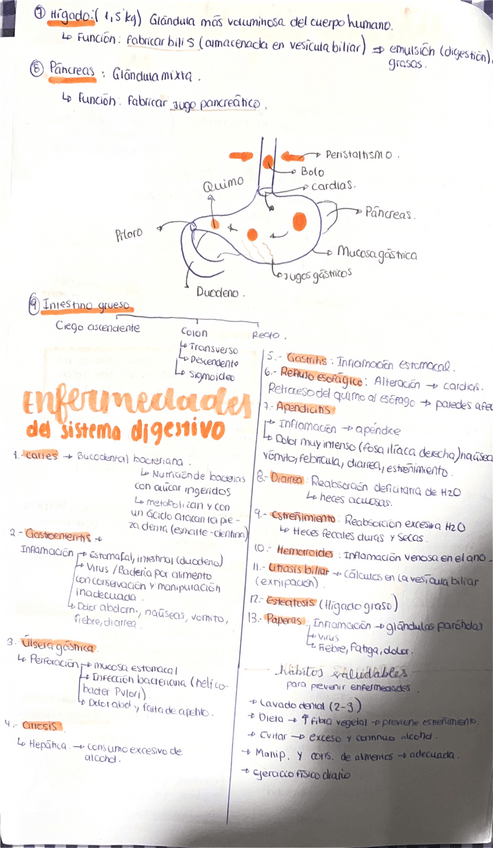 ⑦ Hígado: (1,5 kg) Glándula más voluminosa del cuerpo humano.
↳ Función: fabricar bilis (almacenada en vesícula biliar) ⇒ emulsión (digestión)
grasas.
⑧ Páncreas: Glándula mixta.
↳ Función: Fabricar jugo pancreático.
Peristaltismo.
Bolo
cardias.
Quimo
Páncreas.
Píloro
Mucosa gástrica
Jugos gástricos
Duodeno.
⑨ Intestino grueso
Ciego ascendente
Colon
Recto.
↳ Transverso
↳ Descendente
↳ Sigmoideo
enfermedades
del sistema digestivo
1. caries → Bucodental bacteriana.
↳ Nutriéndose bacterias
con azúcar ingeridos
↳ metabolizan y con
un ácido atacan la pie-
za denta (esmalte-dentina)
2.- Gastroenteritis →
Inflamación → Estomafal, intestinal (duodeno)
↳ Virus/Bacteria por alimento
con conservación y manipulación
inadecuada.
↳ Dolor abdom, náuseas, vómito,
fiebre, diarrea.
3. Úlcera gástrica.
↳ Perforación → mucosa estomacal
↳ Infección bacteriana (helico-
bacter Pylori)
↳ Dolor abd y falta de apetito.
4.- Cirrosis.
↳ Hepática. → consumo excesivo de
alcohol.
5.- Gastritis: Inflamación estomacal.
6.- Reflujo esofágico: Alteración → cardias.
Retroceso del quimo al esófago → paredes
7.- Apendicitis
↳ Inflamación → apéndice
↳ Dolor muy intenso (fosa ilíaca derecha) náusea
vómito, febrícula, diarrea, estreñimiento.
8.- Diarrea: Reabsorción deficitaria de H2O
↳ heces acuosas.
9.- Estreñimiento: Reabsorción excesiva H2O
↳ Heces fecales duras y secas.
10.- Hemorroides: Inflamación venosa en el ano.
11.- Litiasis biliar → Cálculos en la vesícula biliar
(extirpación).
12.- Esteatosis (Hígado graso)
13.- Paperas, Inflamación → glándulas parótidas
↳ Virus
↳ Fiebre, Fatiga, dolor.
hábitos saludables
para prevenir enfermedades.
→ Lavado dental (2-3)
→ Dieta → ↑ fibra vegetal → previene estreñimiento.
→ Evitar → exceso y continuo alcohol.
→ Manip. y cons. de alimentos → adecuada.
→ ejercicio físico diario